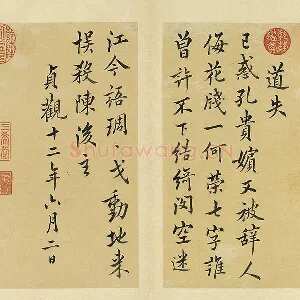 道失
已惑孔貴嬪又被辭人
侮花牋一何榮七字誰
曾許不下結綺閣空迷
江令語琱戈動地來
悮殺陳後主
貞觀十二年六月二日